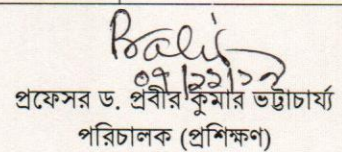 ০৭/১১/১৭
প্রফেসর ড. প্রবীর কুমার ভট্টাচার্য্য
পরিচালক (প্রশিক্ষণ)